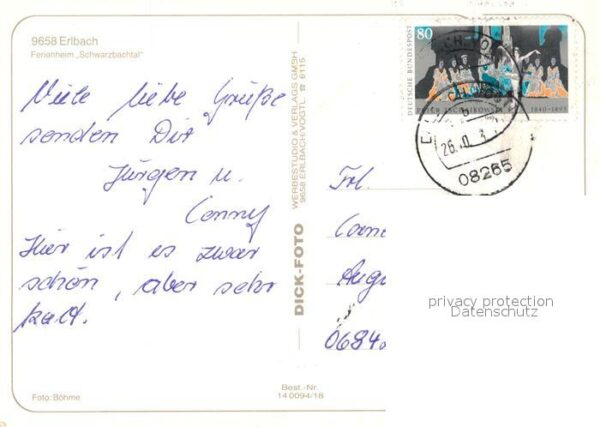 9658 Erlbach
Ferienheim „Schwarzbachtal"
Viele liebe Grüße
senden Dir
Jürgen u.
Conny
Hier ist es zwar
schön, aber sehr
kalt.
Foto: Böhme
Best.-Nr.
14 0094/18
DICK-FOTO
WERBESTUDIO & VERLAGS GMSH
9658 ERLBACH/VOGTL. ☎ 6115
80
DEUTSCHE BUNDESPOST
1840-1893
26.
08265
Frl.
Corne
Augu
0684
privacy protection
Datenschutz